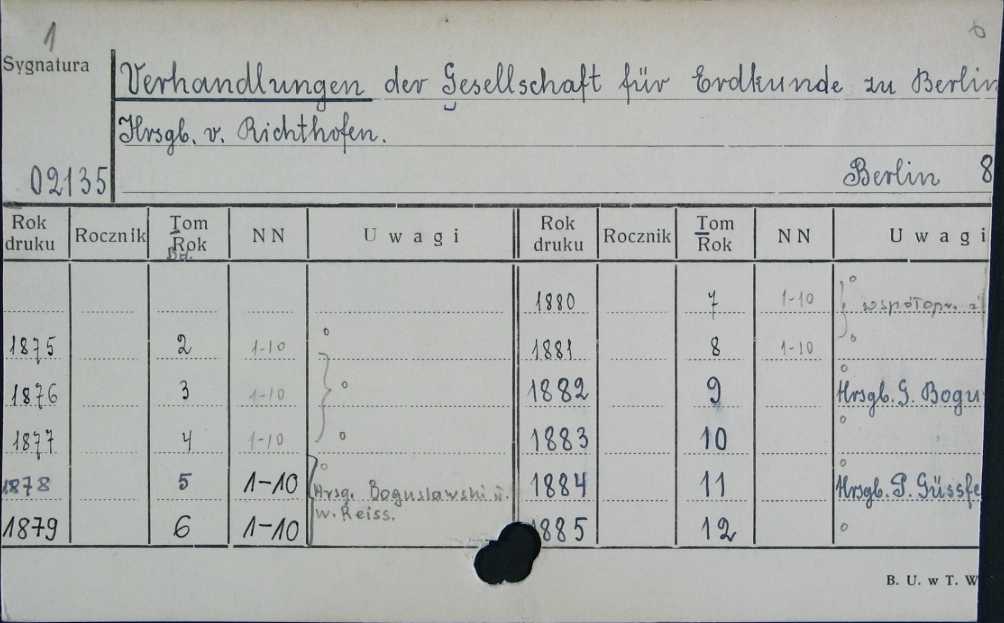 1
Sygnatura
Verhandlungen der Gesellschaft für Erdkunde zu Berlin
Hrsgb. v. Richthofen.
02135
Berlin 8
Rok druku Rocznik Tom Rok Bd. NN Uwagi Rok druku Rocznik Tom Rok NN Uwagi
1880 7 1-10 współopr.
1875 2 1-10 1881 8 1-10
1876 3 1-10 1882 9 Hrsgb. G. Bogu
1877 4 1-10 1883 10
1878 5 1-10 Hrsg. Boguslawski u. 1884 11 Hrsgb. P. Güssfe
w. Reiss.
1879 6 1-10 1885 12
B. U. w T. W